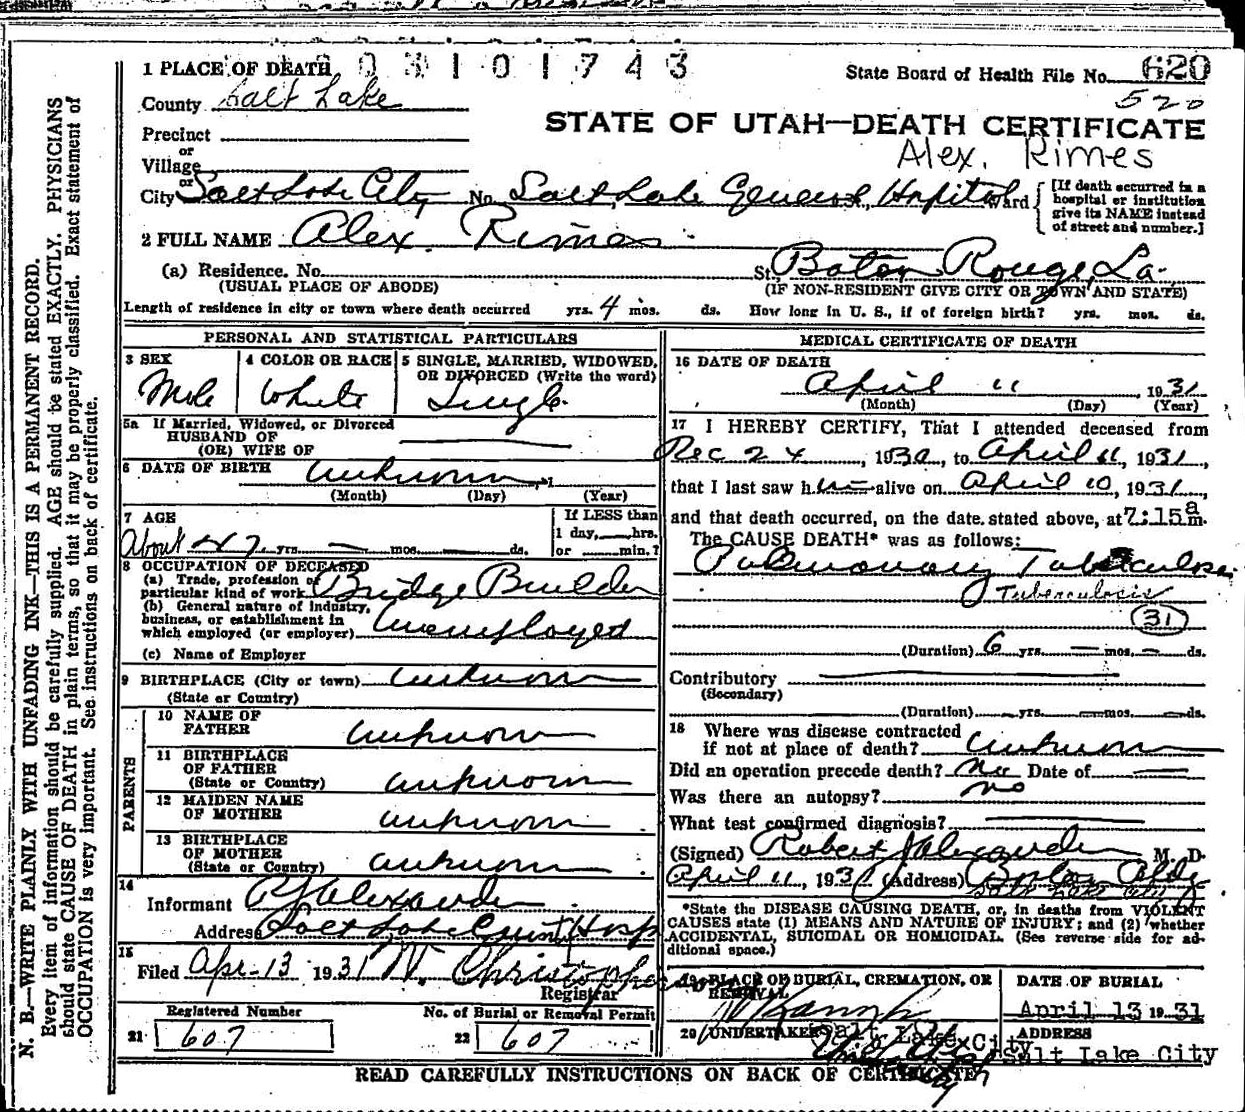 1 PLACE OF DEATH 0 3 1 0 1 7 4 3
State Board of Health File No. 620
520
County Salt Lake
STATE OF UTAH—DEATH CERTIFICATE
Precinct
or
Village
Alex. Rimes
or
City Salt Lake City No. Salt Lake General Hospital Ward
[If death occurred in a hospital or institution give its NAME instead of street and number.]
2 FULL NAME Alex. Rimes
(a) Residence. No. St. Baton Rouge, La.
(USUAL PLACE OF ABODE) (IF NON-RESIDENT GIVE CITY OR TOWN AND STATE)
Length of residence in city or town where death occurred yrs. 4 mos. ds. How long in U. S., if of foreign birth? yrs. mos. ds.
PERSONAL AND STATISTICAL PARTICULARS
3 SEX 4 COLOR OR RACE 5 SINGLE, MARRIED, WIDOWED,
OR DIVORCED (Write the word)
Male White Single
5a If Married, Widowed, or Divorced
HUSBAND OF
(OR) WIFE OF
6 DATE OF BIRTH unknown
(Month) (Day) (Year)
7 AGE If LESS than
1 day, hrs.
About 47 yrs. — mos. — ds. or min.?
8 OCCUPATION OF DECEASED
(a) Trade, profession or
particular kind of work Bridge Builder
(b) General nature of industry,
business, or establishment in
which employed (or employer) unemployed
(c) Name of Employer
9 BIRTHPLACE (City or town) unknown
(State or Country)
PARENTS
10 NAME OF
FATHER unknown
11 BIRTHPLACE
OF FATHER
(State or Country) unknown
12 MAIDEN NAME
OF MOTHER unknown
13 BIRTHPLACE
OF MOTHER
(State or Country) unknown
14
Informant R J Alexander
Address Salt Lake County Hosp
15
Filed Apr-13 1931
Registrar
Registered Number No. of Burial or Removal Permit
21 607 22 607
MEDICAL CERTIFICATE OF DEATH
16 DATE OF DEATH
April 11, 1931
(Month) (Day) (Year)
17 I HEREBY CERTIFY, That I attended deceased from
Dec 24, 1930, to April 11, 1931,
that I last saw him alive on April 10, 1931,
and that death occurred, on the date stated above, at 7:15 a m.
The CAUSE DEATH* was as follows:
Pulmonary Tuberculosis
Tuberculosis
31
(Duration) 6 yrs. — mos. — ds.
Contributory
(Secondary)
(Duration) yrs. mos. ds.
18 Where was disease contracted
if not at place of death? unknown
Did an operation precede death? no Date of —
Was there an autopsy? no
What test confirmed diagnosis?
(Signed) Robert J Alexander M. D.
April 11, 1931 (Address) Boston Bldg
Salt Lake City
*State the DISEASE CAUSING DEATH, or, in deaths from VIOLENT
CAUSES state (1) MEANS AND NATURE OF INJURY; and (2) whether
ACCIDENTAL, SUICIDAL OR HOMICIDAL. (See reverse side for ad-
ditional space.)
19 PLACE OF BURIAL, CREMATION, OR DATE OF BURIAL
REMOVAL
April 13 1931
20 UNDERTAKER Salt Lake City ADDRESS
Salt Lake City
READ CAREFULLY INSTRUCTIONS ON BACK OF CERTIFICATE
N. B.—WRITE PLAINLY WITH UNFADING INK—THIS IS A PERMANENT RECORD.
Every item of information should be carefully supplied. AGE should be stated EXACTLY. PHYSICIANS
should state CAUSE OF DEATH in plain terms, so that it may be properly classified. Exact statement of
OCCUPATION is very important. See instructions on back of certificate.